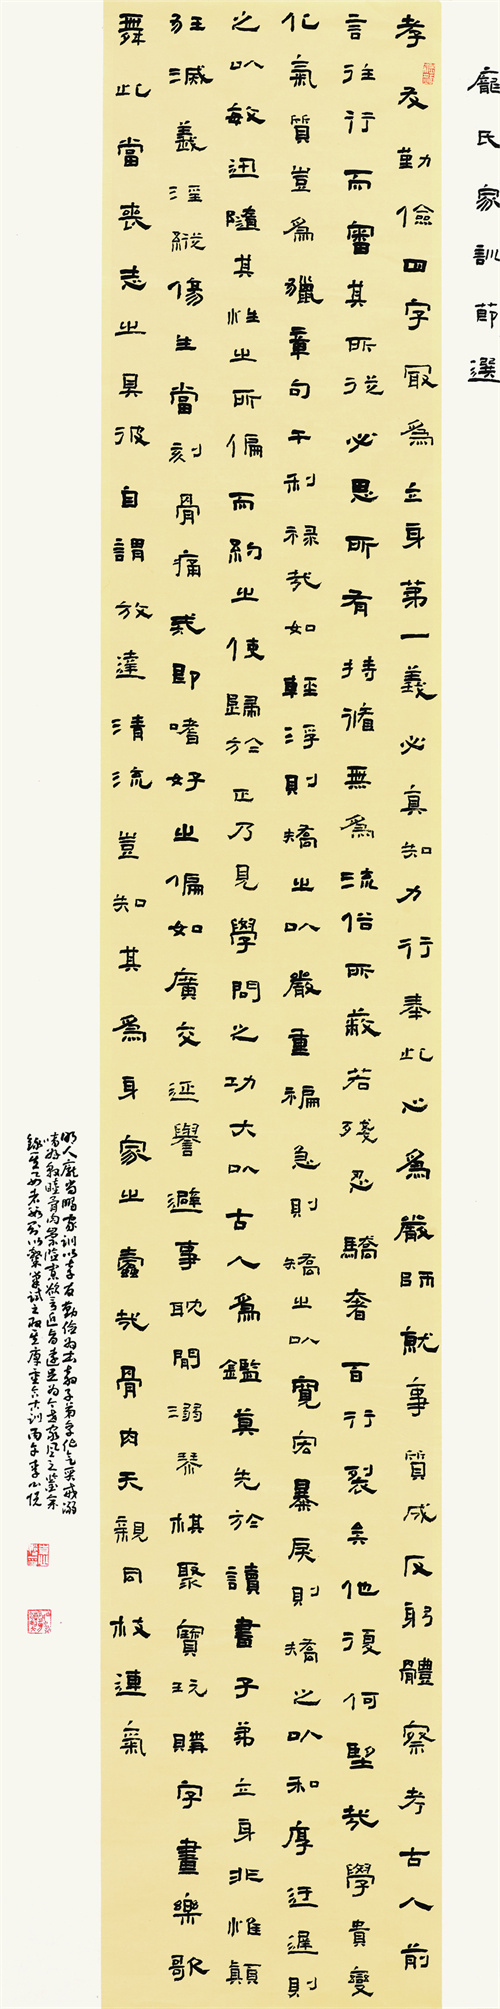 龐氏家訓節選
孝友勤儉四字最為立身第一義必真知力行奉此心為嚴師就事質成反躬體察考古人前
言往行而審其所從必思所有持循無為流俗所蔽若殘忍驕奢百行裂矣他復何望哉學貴變
化氣質豈為獵章句干利祿哉如輕浮則矯之以嚴重褊急則矯之以寬宏暴戾則矯之以和厚迂遲則
之以敏迅隨其性之所偏而約之使歸於正乃見學問之功大以古人為鑑莫先於讀書子弟立身非惟顛
狂滅義淫縱傷生當刻骨痛戒即嗜好之偏如廣交延譽避事耽閒溺琴棋聚寶玩購字畫樂歌
舞此當喪志之具彼自謂放達清流豈知其為身家之蠹哉骨肉天親同枝連氣
明人龐尚鵬家訓以孝友勤儉為本教子弟變化氣質戒溺
嗜好敦睦骨肉